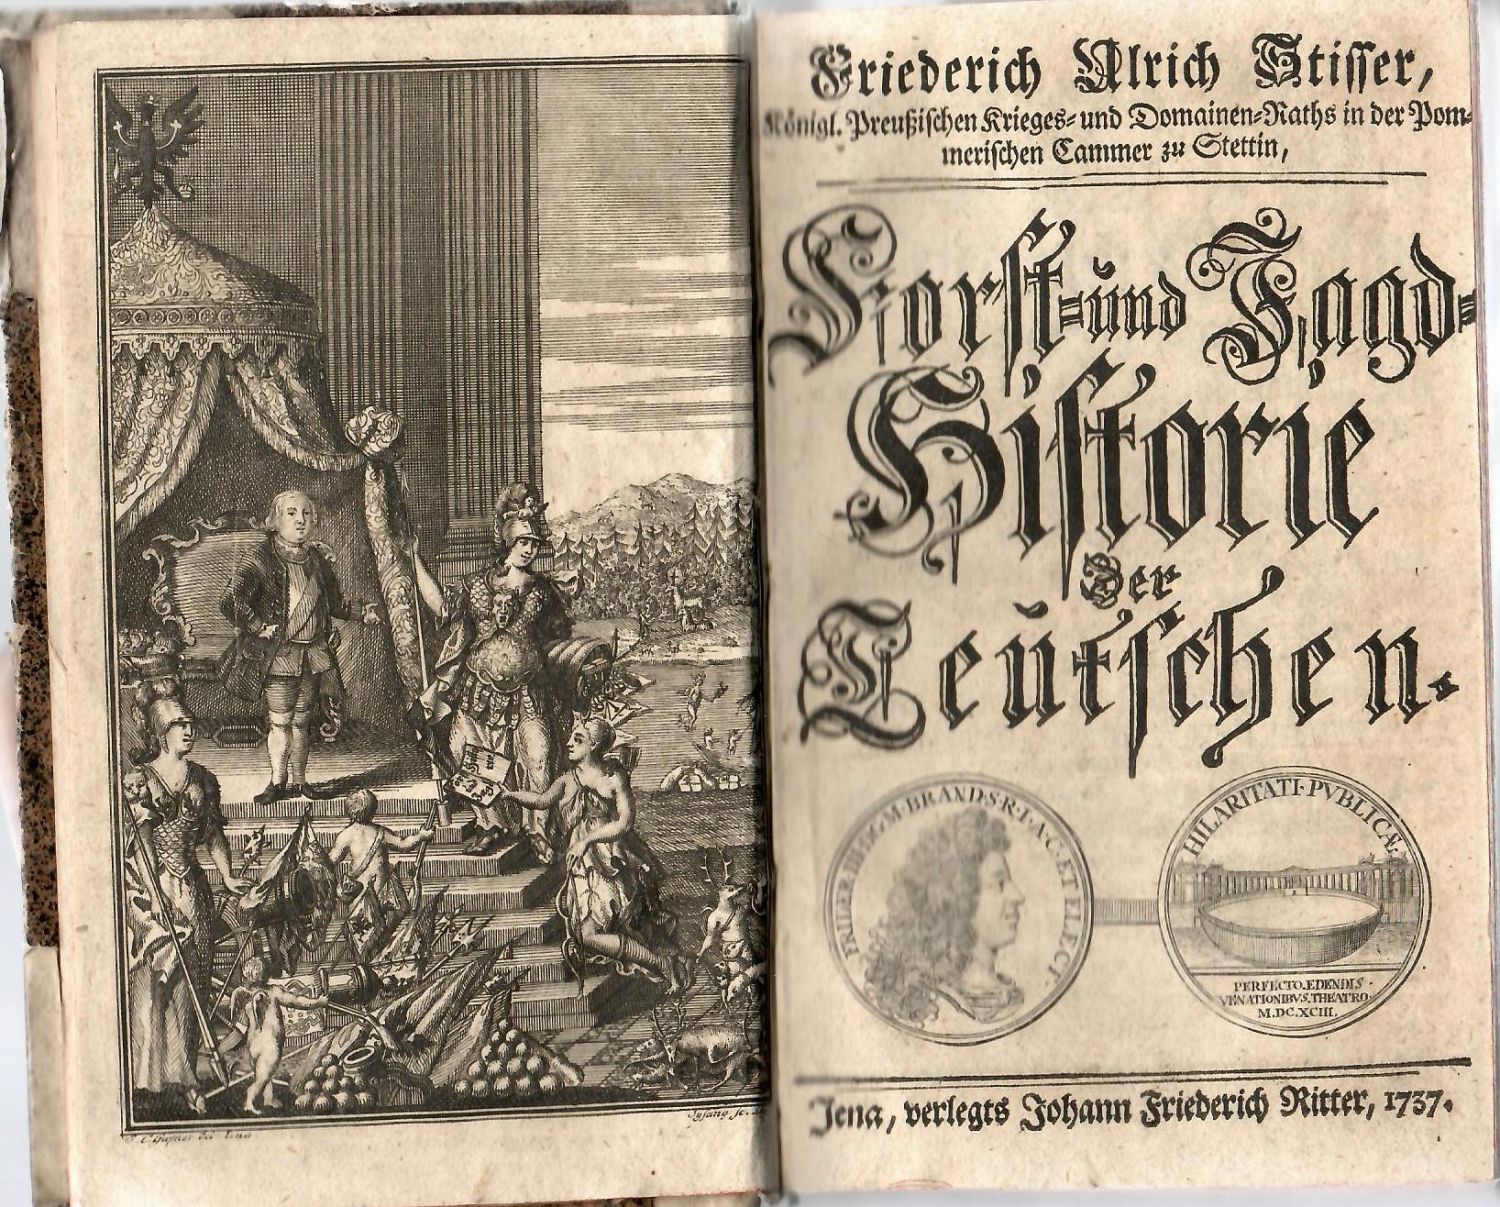 Friederich Ulrich Stisser,
Königl. Preußischen Krieges= und Domainen=Raths in der Pom=
merischen Cammer zu Stettin,
Forst= und Jagd=
Historie
Der
Teütschen.
FRIDER·III·D·G·M·BRAND·S·R·I·A·C·ET ELECT·
HILARITATI·PVBLICÆ
PERFECTO·EDENDIS·
VENATIONIBVS·THEATRO·
M.DC.XCIII.
Jena, verlegts Johann Friederich Ritter, 1737.
Sysang sc.